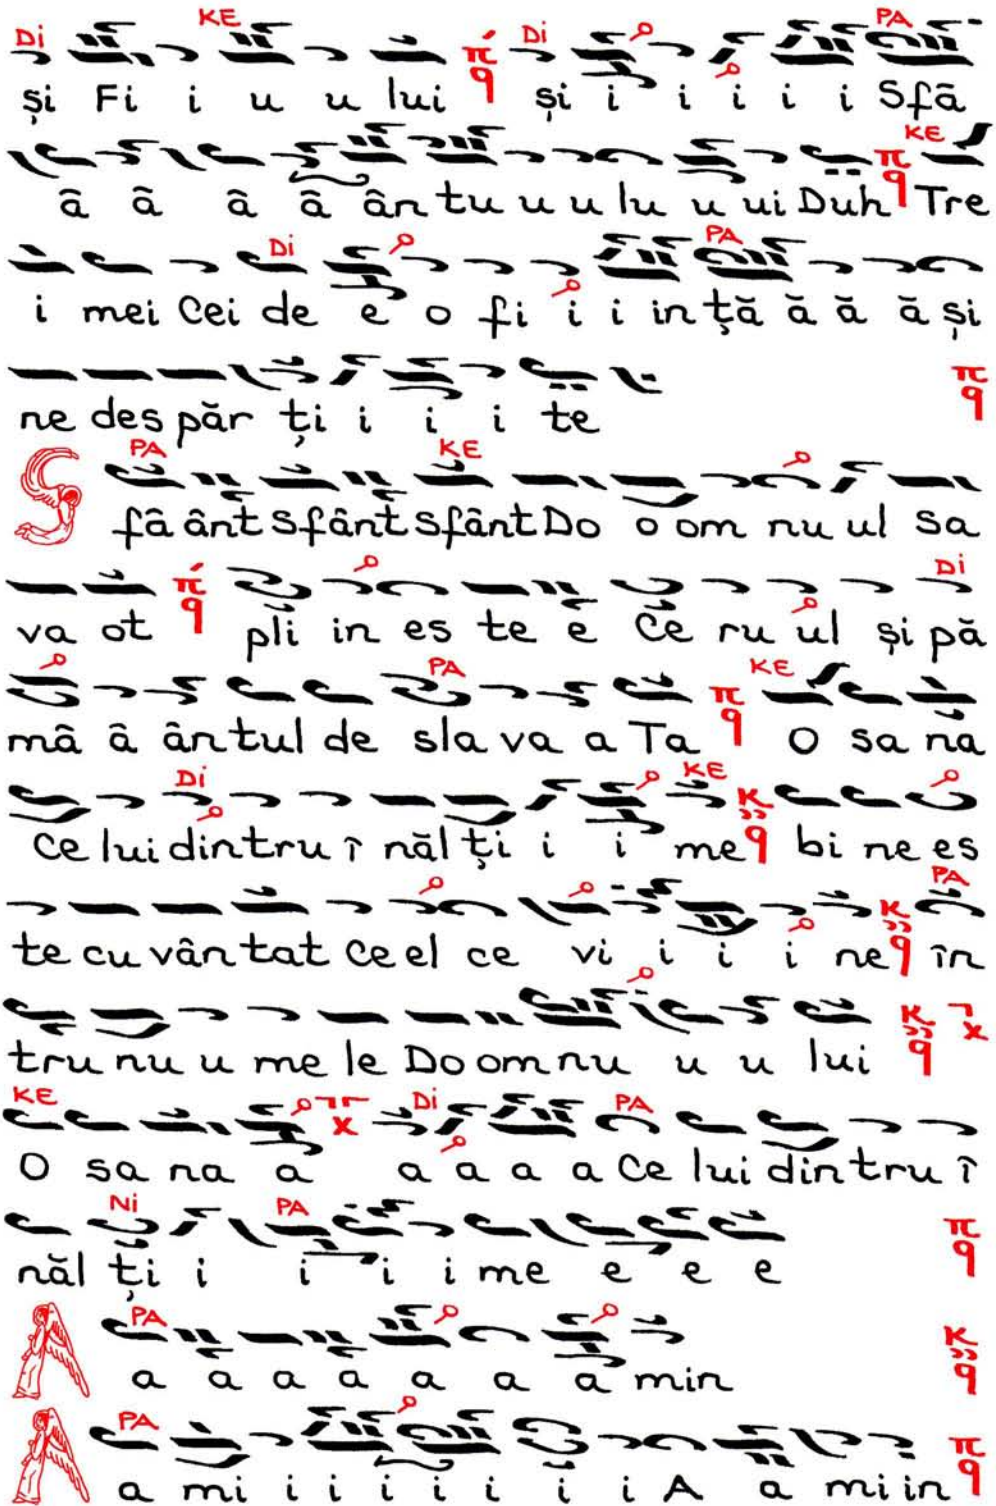 Di KE Di PA
și Fi i u u lui π q și i i i i i Sfâ
KE
â â â â ân tu u u lu u ui Duh π q Tre
Di PA
i mei Cei de e o fi i i in ță ă ă ă și
ne des păr ți i i i te π q
PA KE
S fâ ânt sfânt sfânt Do o om nu ul Sa
Di
va ot π q pli in es te e Ce ru ul și pă
PA KE
mâ â ântul de sla va a Ta π q O sa na
Di KE
Ce lui din tru î năl ți i i me K q bi ne es
PA
te cu vân tat Ce el ce vi i i i ne K q în
tru nu u me le Do om nu u u lui K q
KE Di PA
O sa na a a a a a Ce lui din tru î
Ni PA
năl ți i i i i me e e e π q
PA
A a a a a a a a min K q
PA
A a mi i i i i i i i A a mi in π q